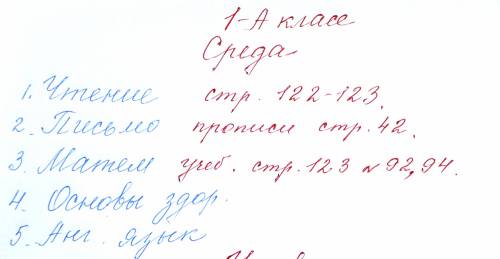 1-А класс
Среда
1. Чтение стр. 122-123.
2. Письмо прописи стр. 42.
3. Матем учеб. стр. 123 №92, 94.
4. Основы здор.
5. Анг. язык